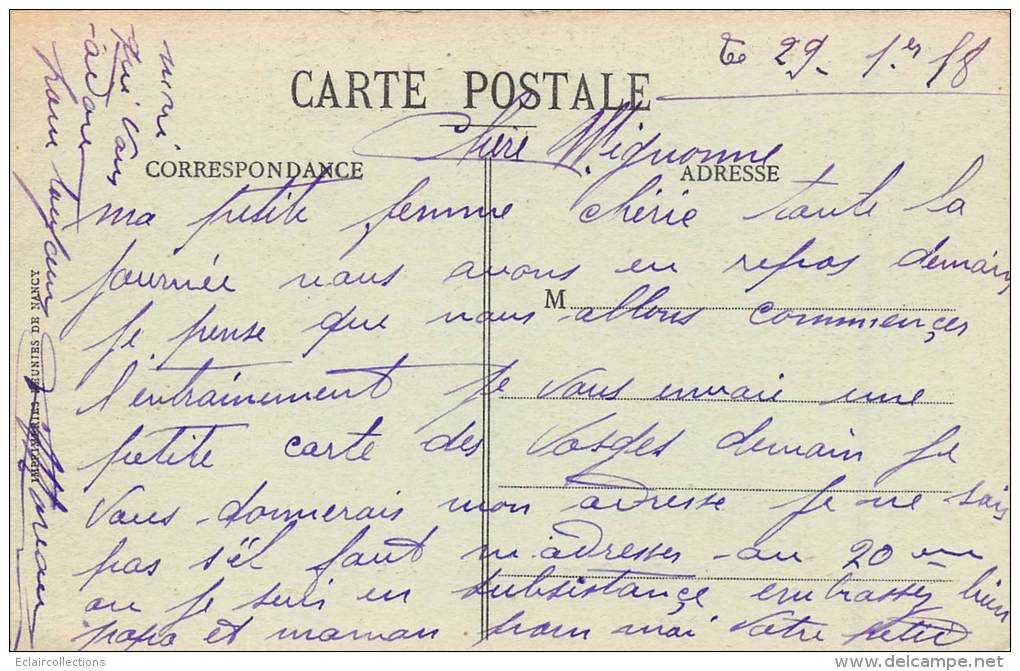 Le 29. 1er 18
CARTE POSTALE
Chère Mignonne
CORRESPONDANCE
ADRESSE
ma petite femme chérie toute la
journée nous avons eu repos demain
M
je pense que nous allons commençer
l'entrainement je vous envoie une
petite carte des Vosges demain je
vous donnerais mon adresse je ne sais
pas s'il faut m'adresser au 20 eme
ou je suis en subsistance embrassez bien
papa et maman pour moi Votre petit
mimi
qui vous
adore
pour toujours
IMPRIMERIES RÉUNIES DE NANCY
Eclaircollections
http://eclaircollections.delcampe.net